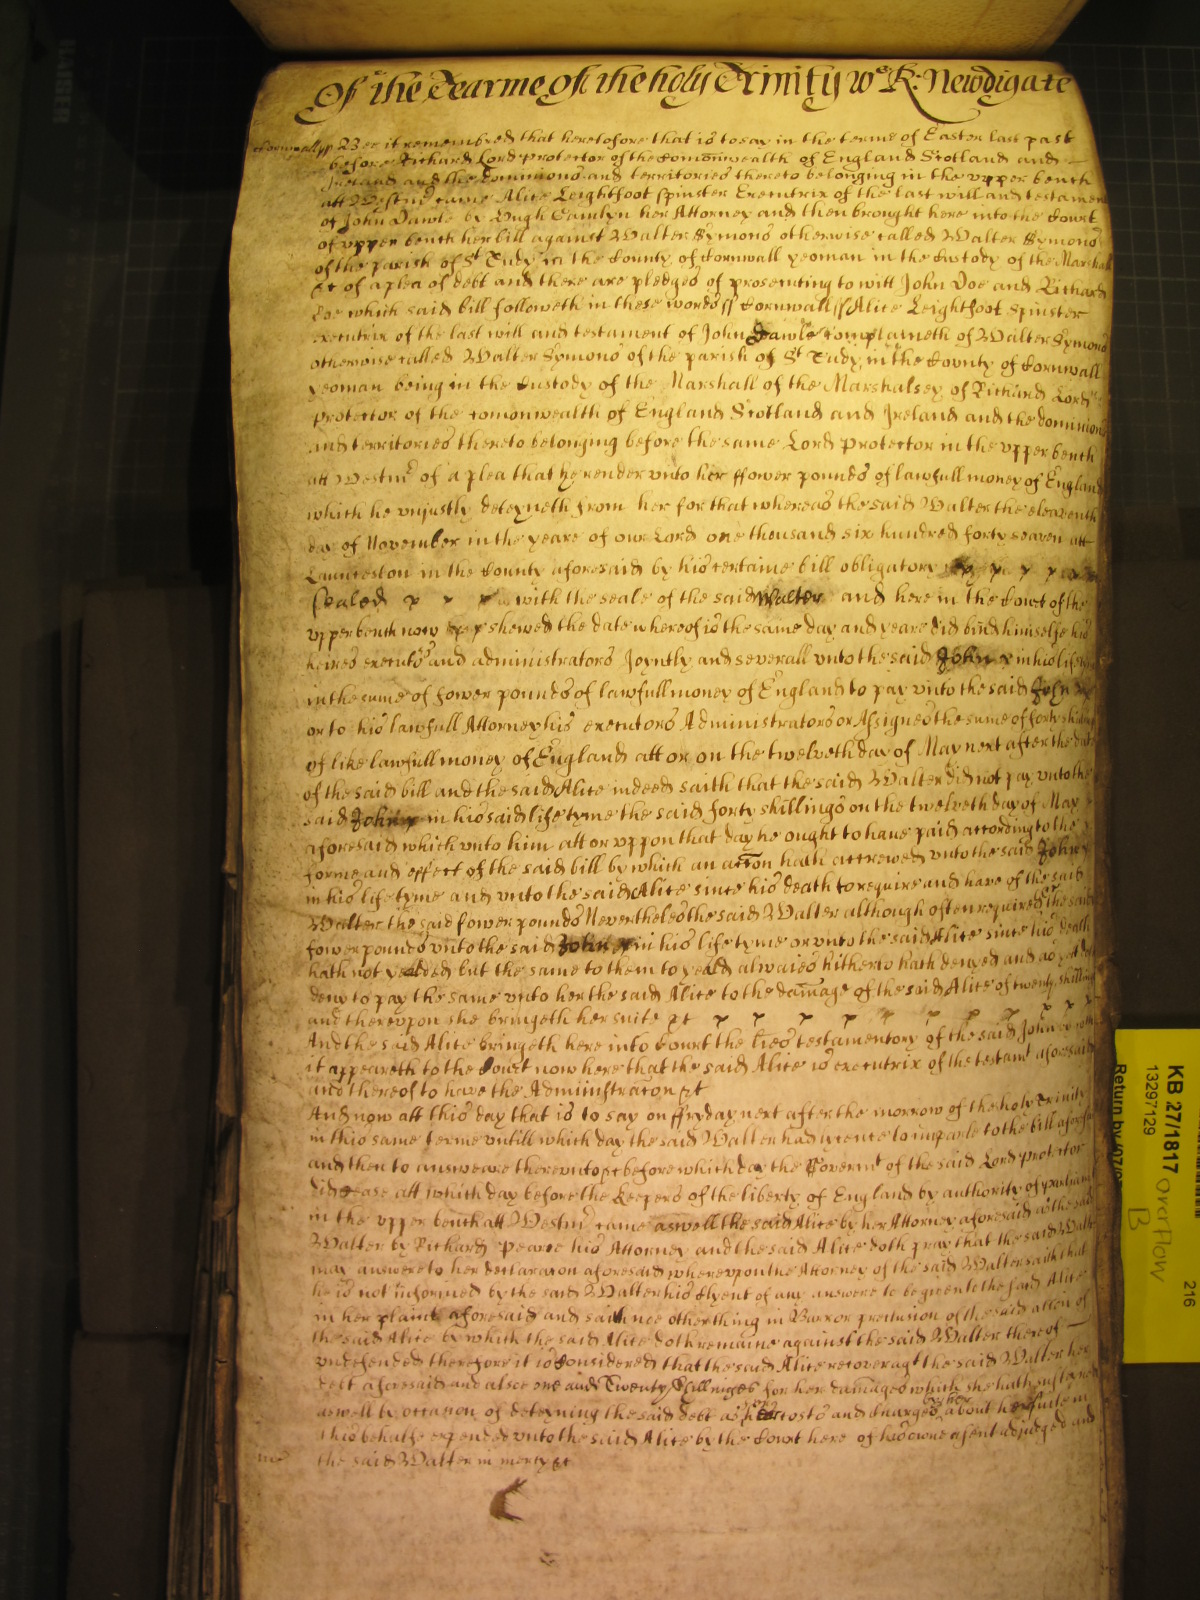 Of the Tearme of the holy Trinity Ws R: Newdigate
Cornwall ss Bee it remembred that heretofore that is to say in the terme of Easter last past
before Richard Lord protector of the Comonwealth of England Scotland and
Ireland and the dominions and territories thereto belonging in the vpper bench
att Westmr came Alice Leightfoot spinster Executrix of the last will and testament
of John Dawle by Hugh Camlyn her Attorney and then brought here into the Court
of vpper bench her bill against Walter Symons otherwise called Walter Symons
of the parish of St Tudy in the County of Cornwall yeoman in the Custody of the Marshall
&c of a plea of debt and there are pledges of prosecuting to witt John Doe and Richard
Roe which said bill followeth in these words ss Cornwall ss Alice Leightfoot Spinster
executrix of the last will and testament of John Dawle complaineth of Walter Symons
otherwise called Walter Symons of the parish of St Tudy in the County of Cornwall
yeoman being in the Custody of the Marshall of the Marshalsey of Richard Lord
protector of the comonwealth of England Scotland and Ireland and the dominions
and territories thereto belonging before the same Lord protector in the vpper bench
att Westmr of a plea that he render vnto her ffower pounds of lawfull money of England
which he vnjustly deteyneth from her for that whereas the said Walter the eleaventh
day of November in the yeare of our Lord one thousand six hundred forty seaven att
Launceston in the County aforesaid by his certaine bill obligatory
sealed with the seale of the said Walter and here in the Court of the
vpper bench now shewed the date whereof is the same day and yeare did bind himselfe his
heires executors and administrators Joyntly and severall vnto the said John in his life
in the sume of fower pounds of lawfull money of England to pay vnto the said John
or to his lawfull Attorney his executors Administrators or Assignes the sume of forty shillings
of like lawfull money of England att or on the twelveth day of May next after the date
of the said bill and the said Alice indeed saith that the said Walter did not pay vnto the
said John in his said life tyme the said forty shillings on the twelveth day of May
aforesaid which vnto him att or vppon that day he ought to have paid according to the
forme and effect of the said bill by which an accon hath accrewed vnto the said John
in his life tyme and vnto the said Alice since his death to require and have of the said
Walter the said fower pounds Nevertheles the said Walter although often required the said
fower pounds vnto the said John in his life tyme or vnto the said Alice since his death
hath not yealded but the same to them to yeald alwaies hitherto hath denyed and as yet doth
deny to pay the same vnto her the said Alice to the damage of the said Alice of twenty shillings
and therevpon she bringeth her suite &c
And the said Alice bringeth here into Court the lres testamentory of the said John by which
it appeareth to the Court now here that the said Alice is executrix of the testamt aforesaid
and thereof to have the Administracon &c
And now att this day that is to say on ffryday next after the morrow of the holy Trinity
in this same terme vntill which day the said Walter had lycence to imparle to the bill aforesd
and then to answeare therevnto &c before which day the Governmt of the said Lord protector
did cease att which day before the keepers of the liberty of England by authority of parliamt
in the vpper bench att Westmr came aswell the said Alice by her Attorney aforesaid as the said
Walter by Richard Pearce his Attorney and the said Alice doth pray that the said Walter
may answere to her declaracon aforesaid wherevpon the Attorney of the said Walter saith that
he is not informed by the said Walter his Clyent of any answere to be given to the said Alice
in her plaint aforesaid and saith noe other thing in Barr or preclusion of the said accon of
the said Alice by which the said Alice doth remaine against the said Walter thereof
vndefended therefore it is Considered that the said Alice recover agt the said Walter her
debt aforesaid and alsoe one and Twenty Shillinges for her damages which she hath susteyned
aswell by occasion of deteyning the said debt as her costs and Charges by her about her suite in
this behalfe expended vnto the said Alice by the Court here of his owne assent adjudged and
the said Walter in mercy &c
KB 27/1817
13297129
overflow
B
216
Return by